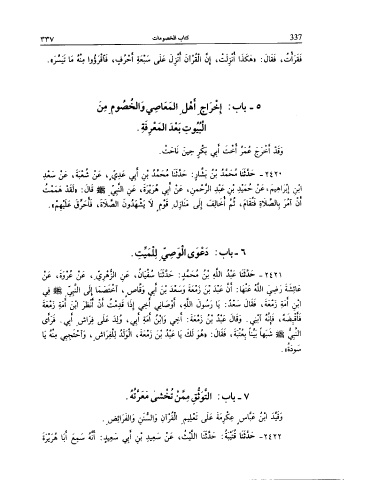 337 كتاب الخصومات ٣٣٧
فَقَرَأْتُ، فَقَالَ: «هَكَذَا أُنْزِلَتْ، إِنَّ الْقُرْآنَ أُنْزِلَ عَلَى سَبْعَةِ أَحْرُفٍ، فَاقْرَؤُوا مِنْهُ مَا تَيَسَّرَ».
٥ - باب: إِخْرَاجِ أَهْلِ المَعَاصِي وَالخُصُومِ مِنَ
الْبُيُوتِ بَعْدَ المَعْرِفَةِ.
وَقَدْ أَخْرَجَ عُمَرُ أُخْتَ أَبِي بَكْرٍ حِينَ نَاحَتْ.
٢٤٢٠- حَدَّثَنَا مُحَمَّدُ بْنُ بَشَّارٍ: حَدَّثَنَا مُحَمَّدُ بْنُ أَبِي عَدِيٍّ، عَنْ شُعْبَةَ، عَنْ سَعْدِ
ابْنِ إِبْرَاهِيمَ، عَنْ حُمَيْدِ بْنِ عَبْدِ الرَّحْمٰنِ، عَنْ أَبِي هُرَيْرَةَ، عَنِ النَّبِيِّ ﷺ قَالَ: «لَقَدْ هَمَمْتُ
أَنْ آمُرَ بِالصَّلَاةِ فَتُقَامَ، ثُمَّ أُخَالِفَ إِلَى مَنَازِلِ قَوْمٍ لَا يَشْهَدُونَ الصَّلَاةَ، فَأُحَرِّقَ عَلَيْهِمْ».
٦ - باب: دَعْوَى الْوَصِيِّ لِلْمَيِّتِ.
٢٤٢١- حَدَّثَنَا عَبْدُ اللهِ بْنُ مُحَمَّدٍ: حَدَّثَنَا سُفْيَانُ، عَنِ الزُّهْرِيِّ، عَنْ عُرْوَةَ، عَنْ
عَائِشَةَ رَضِيَ اللهُ عَنْهَا: أَنَّ عَبْدَ بْنَ زَمْعَةَ وَسَعْدَ بْنَ أَبِي وَقَّاصٍ، اخْتَصَمَا إِلَى النَّبِيِّ ﷺ فِي
ابْنِ أَمَةِ زَمْعَةَ، فَقَالَ سَعْدٌ: يَا رَسُولَ اللهِ، أَوْصَانِي أَخِي إِذَا قَدِمْتُ أَنْ أَنْظُرَ ابْنَ أَمَةِ زَمْعَةَ
فَأَقْبِضَهُ، فَإِنَّهُ ابْنِي. وَقَالَ عَبْدُ بْنُ زَمْعَةَ: أَخِي وَابْنُ أَمَةِ أَبِي، وُلِدَ عَلَى فِرَاشِ أَبِي. فَرَأَى
النَّبِيُّ ﷺ شَبَهاً بَيِّناً بِعُتْبَةَ، فَقَالَ: «هُوَ لَكَ يَا عَبْدُ بْنَ زَمْعَةَ، الْوَلَدُ لِلْفِرَاشِ، وَاحْتَجِبِي مِنْهُ يَا
سَوْدَةُ».
٧ - باب: التَّوَثُّقِ مِمَّنْ تُخْشَى مَعَرَّتُهُ.
وَقَيَّدَ ابْنُ عَبَّاسٍ عِكْرِمَةَ عَلَى تَعْلِيمِ الْقُرْآنِ وَالسُّنَنِ وَالْفَرَائِضِ.
٢٤٢٢- حَدَّثَنَا قُتَيْبَةُ: حَدَّثَنَا اللَّيْثُ، عَنْ سَعِيدِ بْنِ أَبِي سَعِيدٍ: أَنَّهُ سَمِعَ أَبَا هُرَيْرَةَ